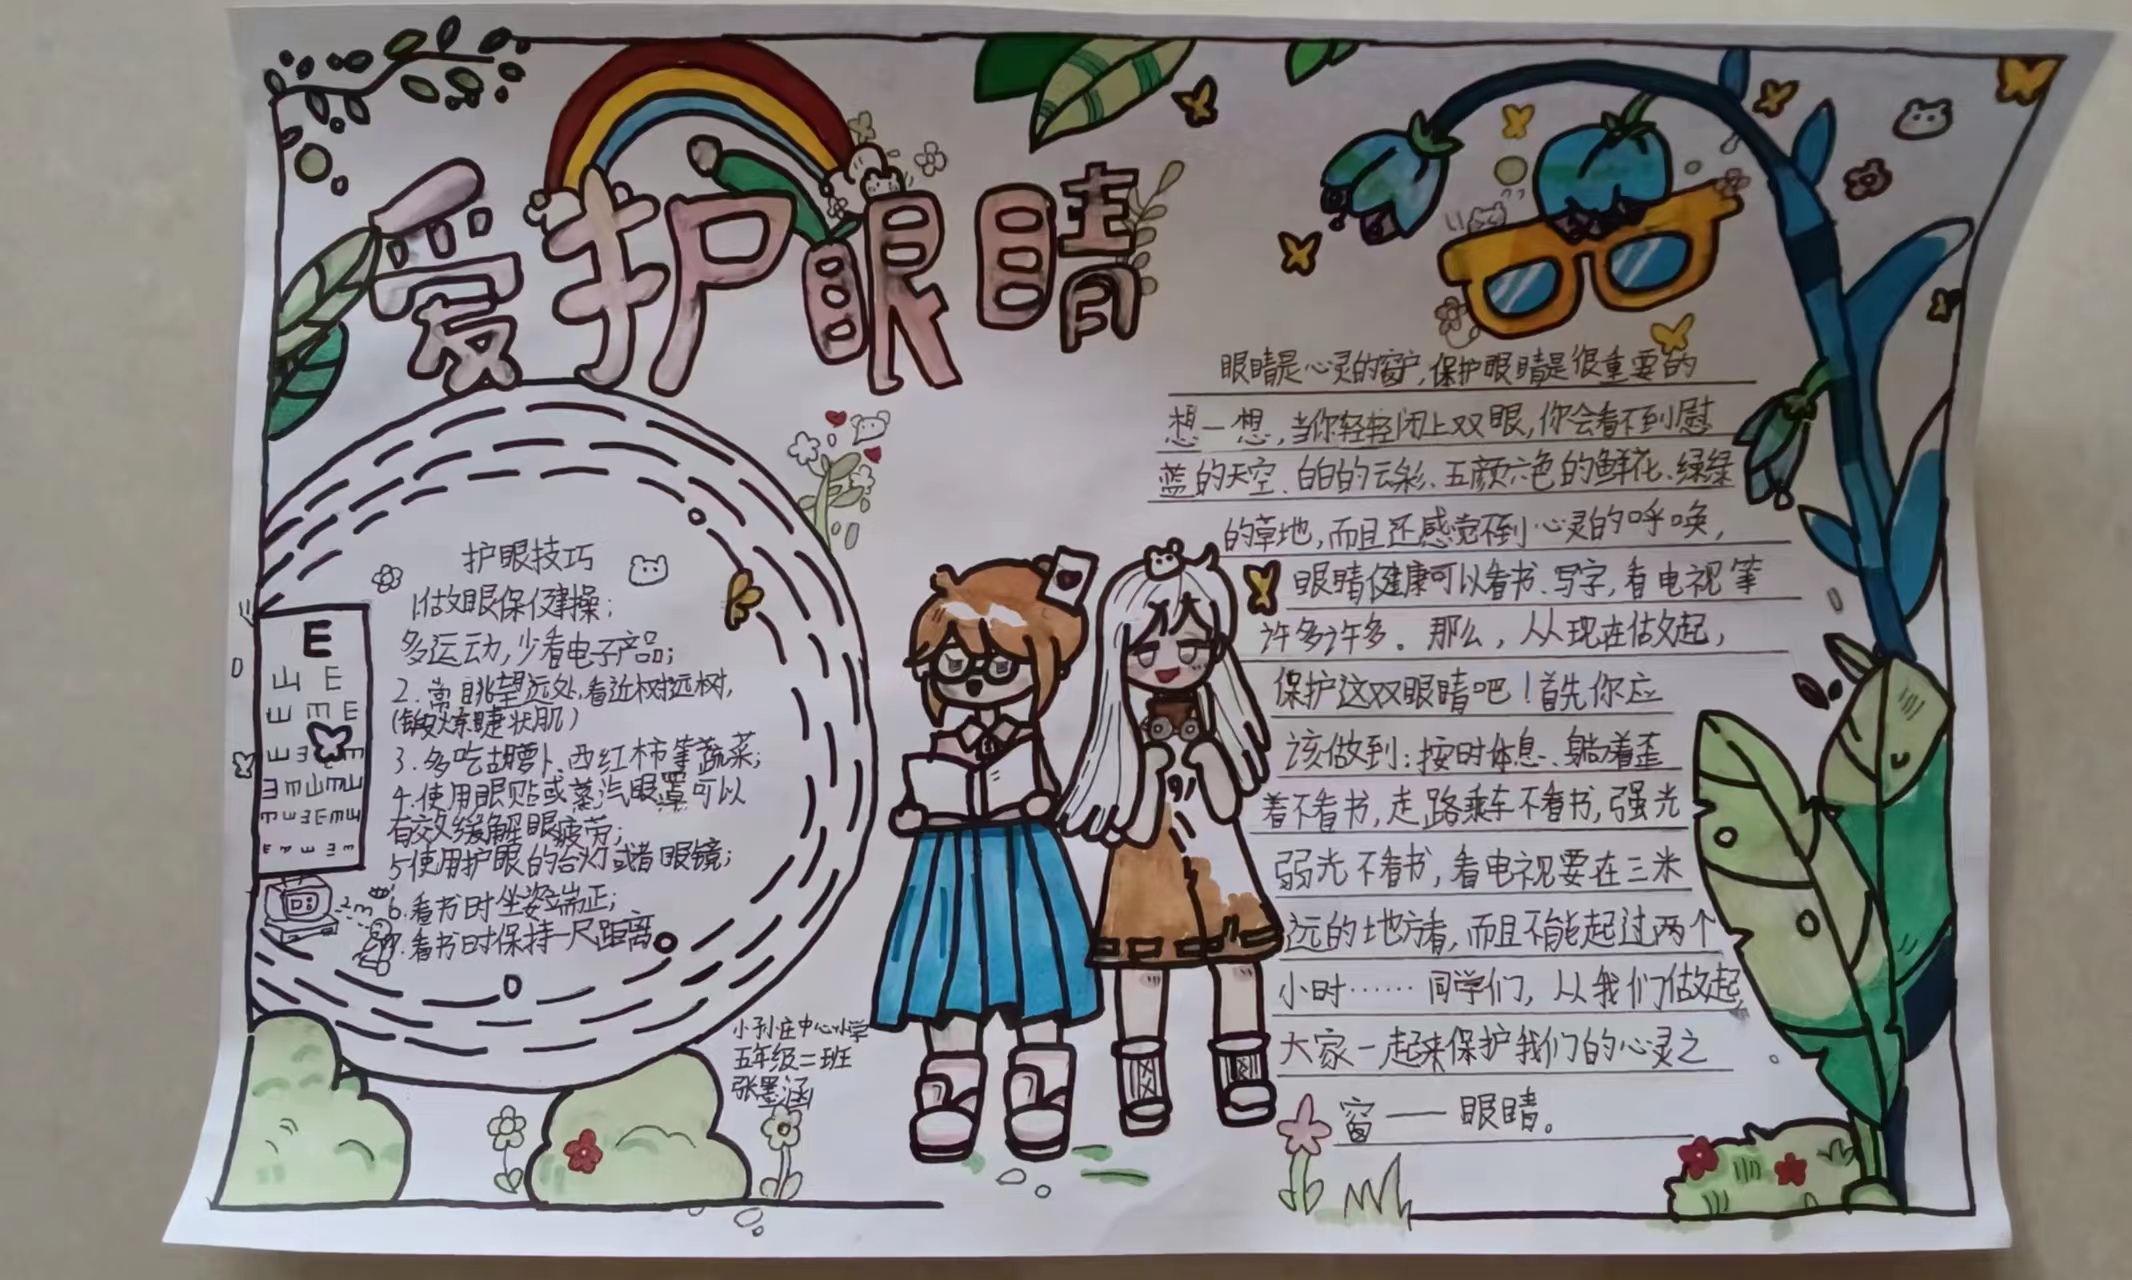 爱护眼睛
护眼技巧
1.做眼保健操；
多运动，少看电子产品；
2.常眺望远处，看近树远树，
(锻炼睫状肌)
3.多吃胡萝卜、西红柿等蔬菜；
4.使用眼贴或蒸汽眼罩可以
有效缓解眼疲劳；
5使用护眼的台灯或者眼镜；
6.看书时坐姿端正；
7.看书时保持一尺距离。
E
2m
小孙庄中心小学
五年级二班
张墨涵
眼睛是心灵的窗户，保护眼睛是很重要的
想一想，当你轻轻闭上双眼，你会看不到慰
蓝的天空、白白的云彩、五颜六色的鲜花、绿绿
的草地，而且还感觉不到心灵的呼唤，
眼睛健康可以看书、写字，看电视等
许多许多。那么，从现在做起，
保护这双眼睛吧！首先你应
该做到：按时休息、躺着歪
着不看书，走路乘车不看书，强光
弱光不看书，看电视要在三米
远的地方看，而且不能起过两个
小时……同学们，从我们做起，
大家一起来保护我们的心灵之
窗——眼睛。